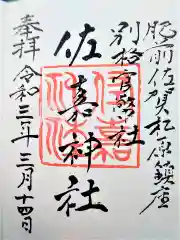 肥前佐賀松原鎮座
別格官幣社
佐嘉神社
奉拝
令和三年三月十四日